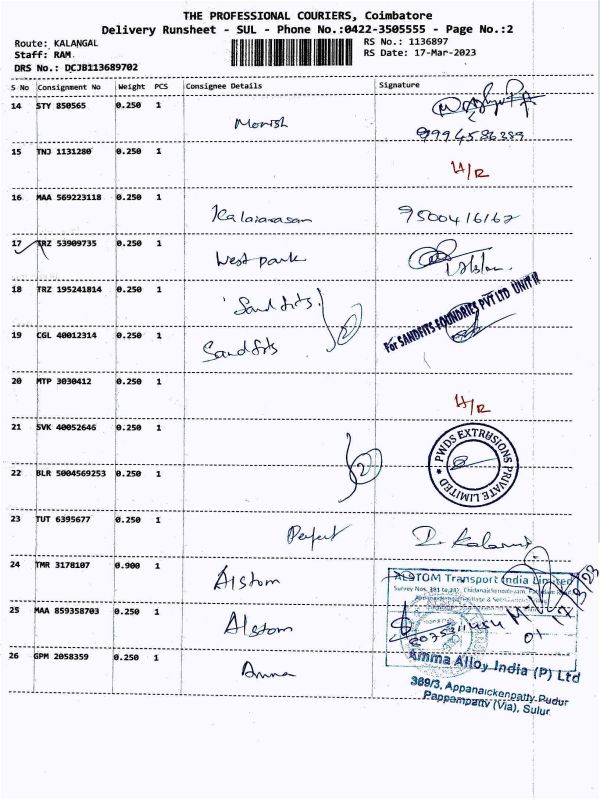 THE PROFESSIONAL COURIERS, Coimbatore
Delivery Runsheet - SUL - Phone No.:0422-3505555 - Page No.:2
Route: KALANGAL
Staff: RAM
DRS No.: DCJB113689702
RS No.: 1136897
RS Date: 17-Mar-2023
S No Consignment No Weight PCS Consignee Details Signature
14 STY 850565 0.250 1
9994586389
15 TNJ 1131280 0.250 1 H/R
16 MAA 569223118 0.250 1 Kalaiarasan 9500416162
17 TRZ 53909735 0.250 1 West park
18 TRZ 195241814 0.250 1 Sandfits
For SANDFITS FOUNDRIES PVT LTD UNIT II
19 CGL 40012314 0.250 1 Sandfits 2
20 MTP 3030412 0.250 1 H/R
21 SVK 40052646 0.250 1
PWDS EXTRUSIONS PRIVATE LIMITED
22 BLR 5004569253 0.250 1 2
23 TUT 6395677 0.250 1 Perfect
24 TMR 3178107 0.900 1 Alstom
ALSTOM Transport India Limited
17/3/23
25 MAA 859358703 0.250 1 Alstom
26 GPM 2058359 0.250 1 Amma
Amma Alloy India (P) Ltd
369/3, Appanaickenpatty Pudur
Pappampatty (Via), Sulur